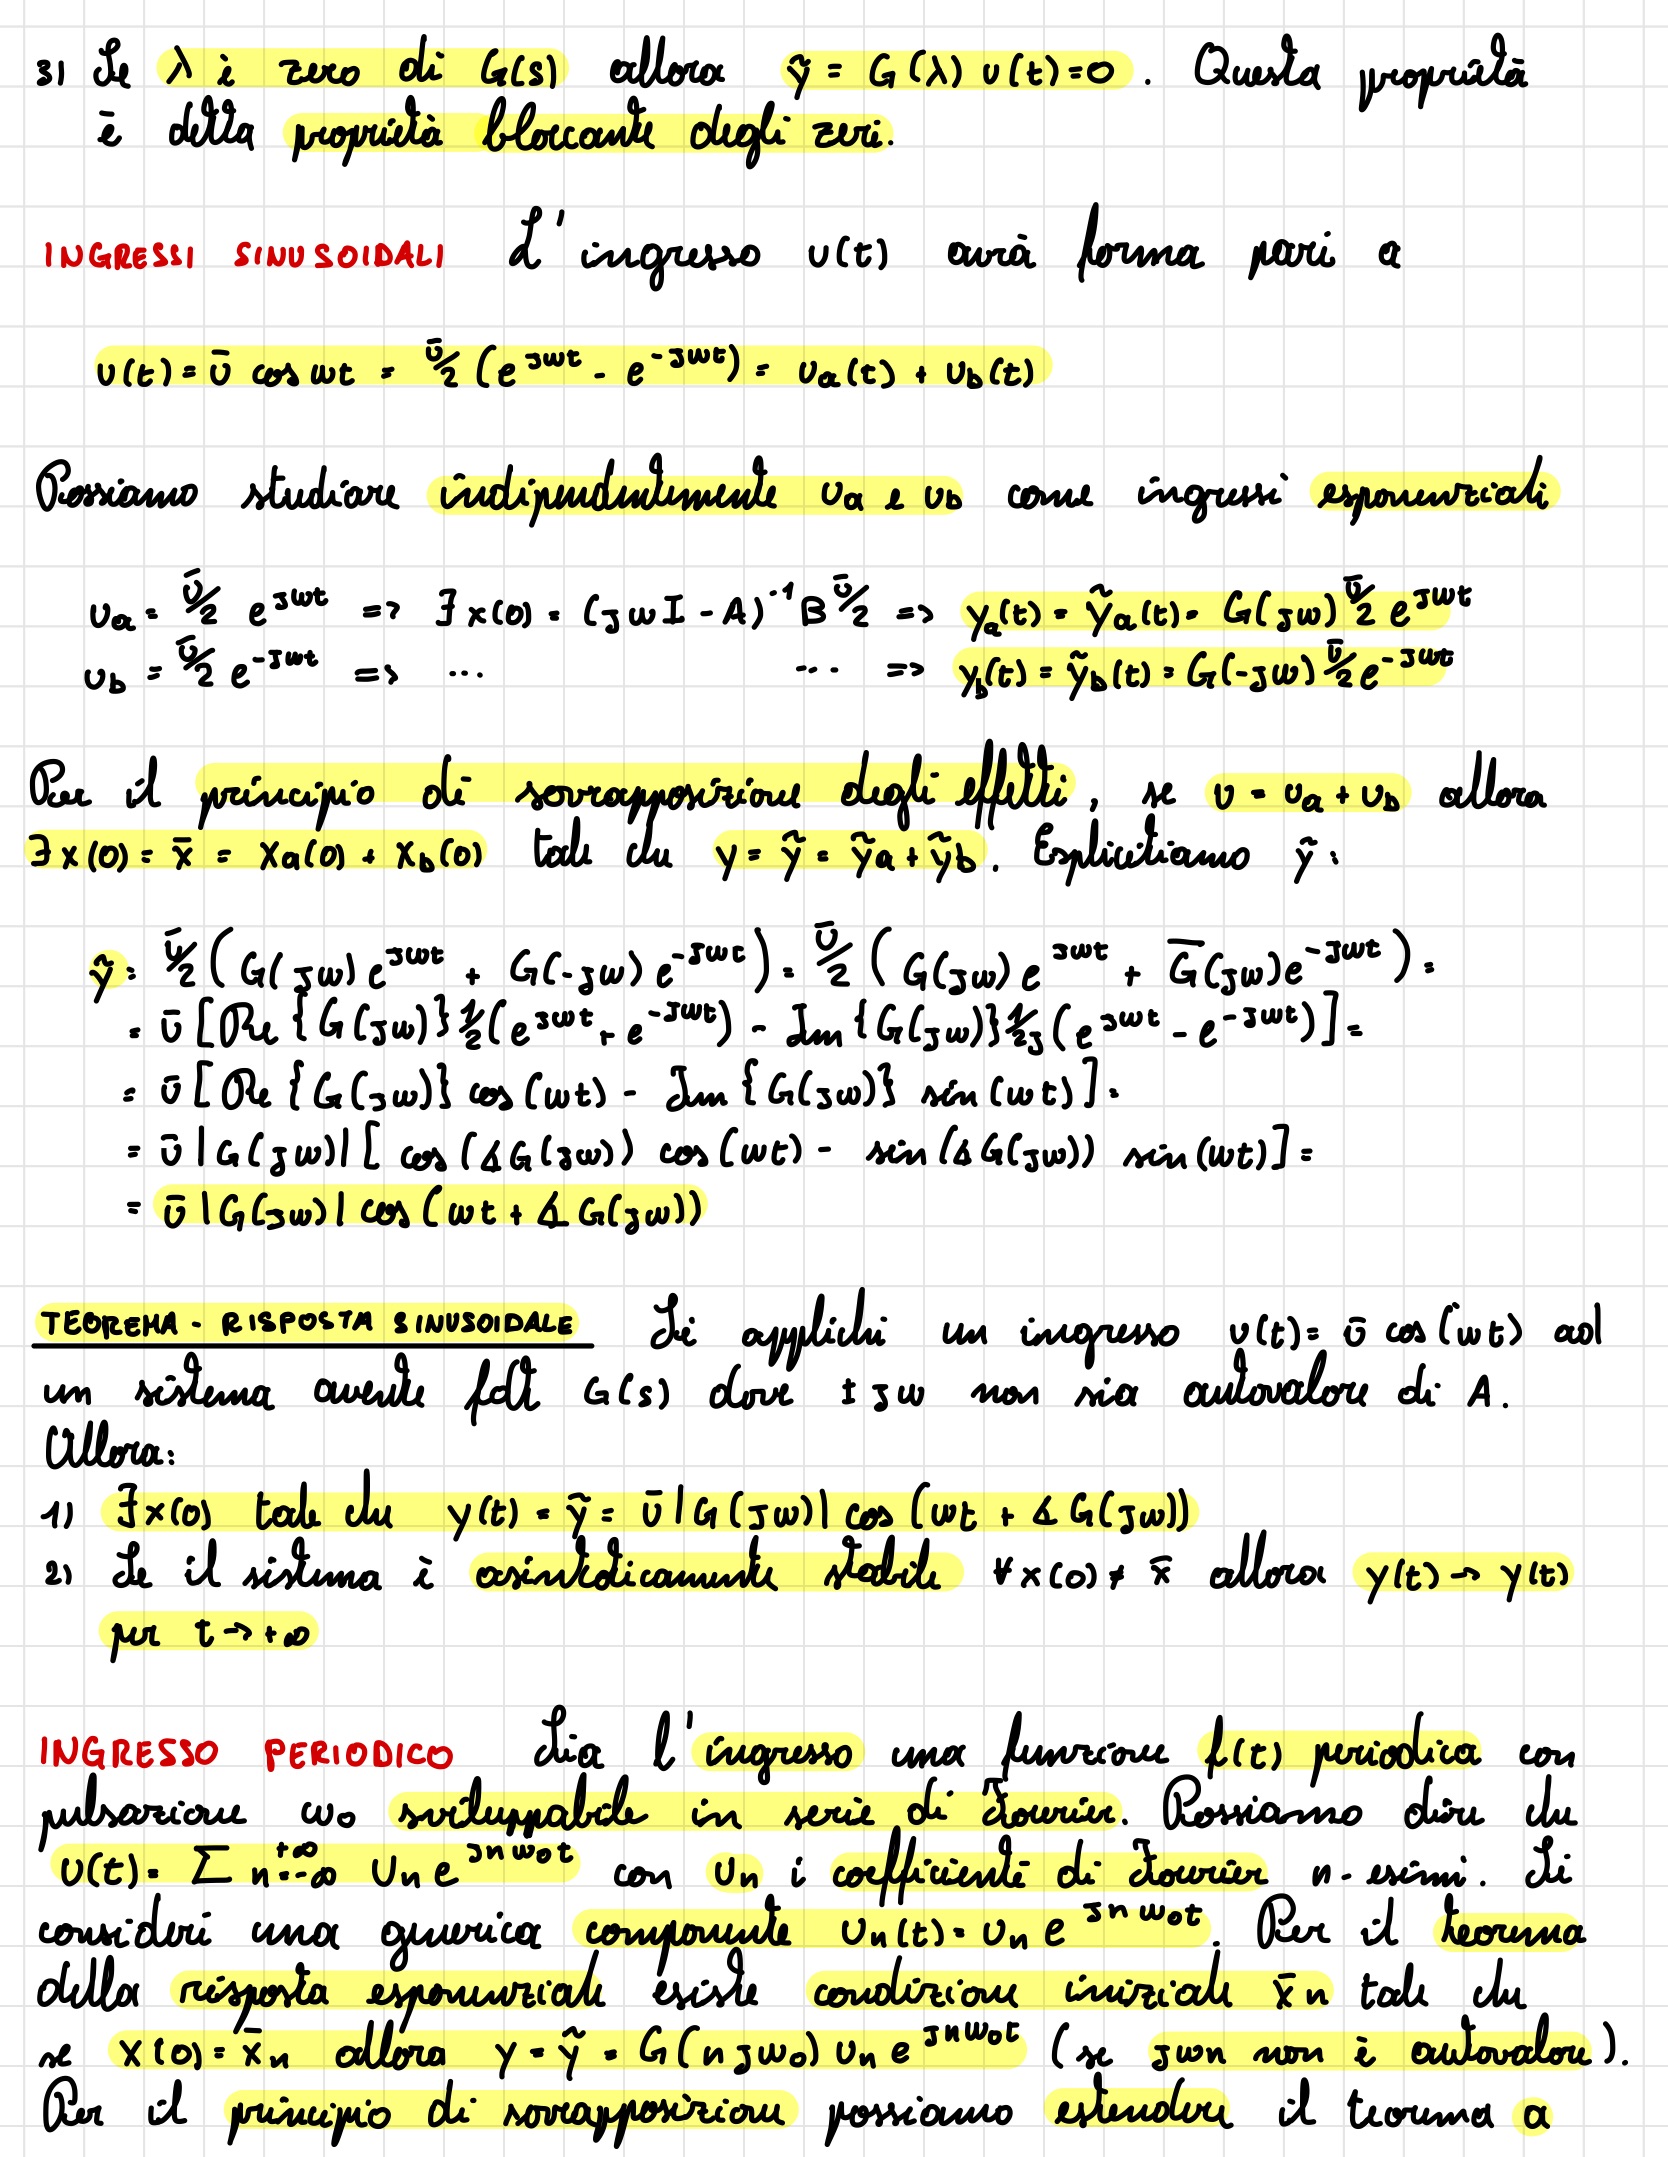 3) Se λ è zero di G(s) allora ỹ = G(λ) u(t)=0. Questa proprietà
è detta proprietà bloccante degli zeri.
INGRESSI SINUSOIDALI L'ingresso u(t) avrà forma pari a
u(t) = ū cos ωt = ū/2 (e^{jωt} - e^{-jωt}) = u_a(t) + u_b(t)
Possiamo studiare indipendentemente u_a e u_b come ingressi esponenziali
u_a = ū/2 e^{jωt} => ∃ x(0) = (jωI - A)^{-1} B ū/2 => y_a(t) = ỹ_a(t) = G(jω) ū/2 e^{jωt}
u_b = ū/2 e^{-jωt} => ... ... => y_b(t) = ỹ_b(t) = G(-jω) ū/2 e^{-jωt}
Per il principio di sovrapposizione degli effetti, se u = u_a + u_b allora
∃ x(0) = x̄ = x_a(0) + x_b(0) tale che y = ỹ = ỹ_a + ỹ_b. Esplicitiamo ỹ:
ỹ = ū/2 (G(jω) e^{jωt} + G(-jω) e^{-jωt}) = ū/2 (G(jω) e^{jωt} + Ḡ(jω) e^{-jωt}) =
= ū [Re {G(jω)} 1/2 (e^{jωt} + e^{-jωt}) - Im {G(jω)} 1/2j (e^{jωt} - e^{-jωt})] =
= ū [Re {G(jω)} cos(ωt) - Im {G(jω)} sin(ωt)] =
= ū |G(jω)| [cos(∡G(jω)) cos(ωt) - sin(∡G(jω)) sin(ωt)] =
= ū |G(jω)| cos(ωt + ∡G(jω))
TEOREMA - RISPOSTA SINUSOIDALE Si applichi un ingresso u(t) = ū cos(ωt) ad
un sistema avente fdt G(s) dove ±jω non sia autovalore di A.
Allora:
1) ∃ x(0) tale che y(t) = ỹ = ū |G(jω)| cos(ωt + ∡G(jω))
2) Se il sistema è asintoticamente stabile ∀ x(0) ≠ x̄ allora y(t) → y(t)
per t → +∞
INGRESSO PERIODICO Sia l'ingresso una funzione f(t) periodica con
pulsazione ω₀ sviluppabile in serie di Fourier. Possiamo dire che
U(t) = Σ n=-∞^{+∞} U_n e^{jnω₀t} con U_n i coefficienti di Fourier n-esimi. Si
consideri una generica componente U_n(t) = U_n e^{jnω₀t}. Per il teorema
della risposta esponenziale esiste condizione iniziale x̄_n tale che
se x(0) = x̄_n allora y = ỹ = G(njω₀) U_n e^{jnω₀t} (se jωn non è autovalore).
Per il principio di sovrapposizione possiamo estendere il teorema a